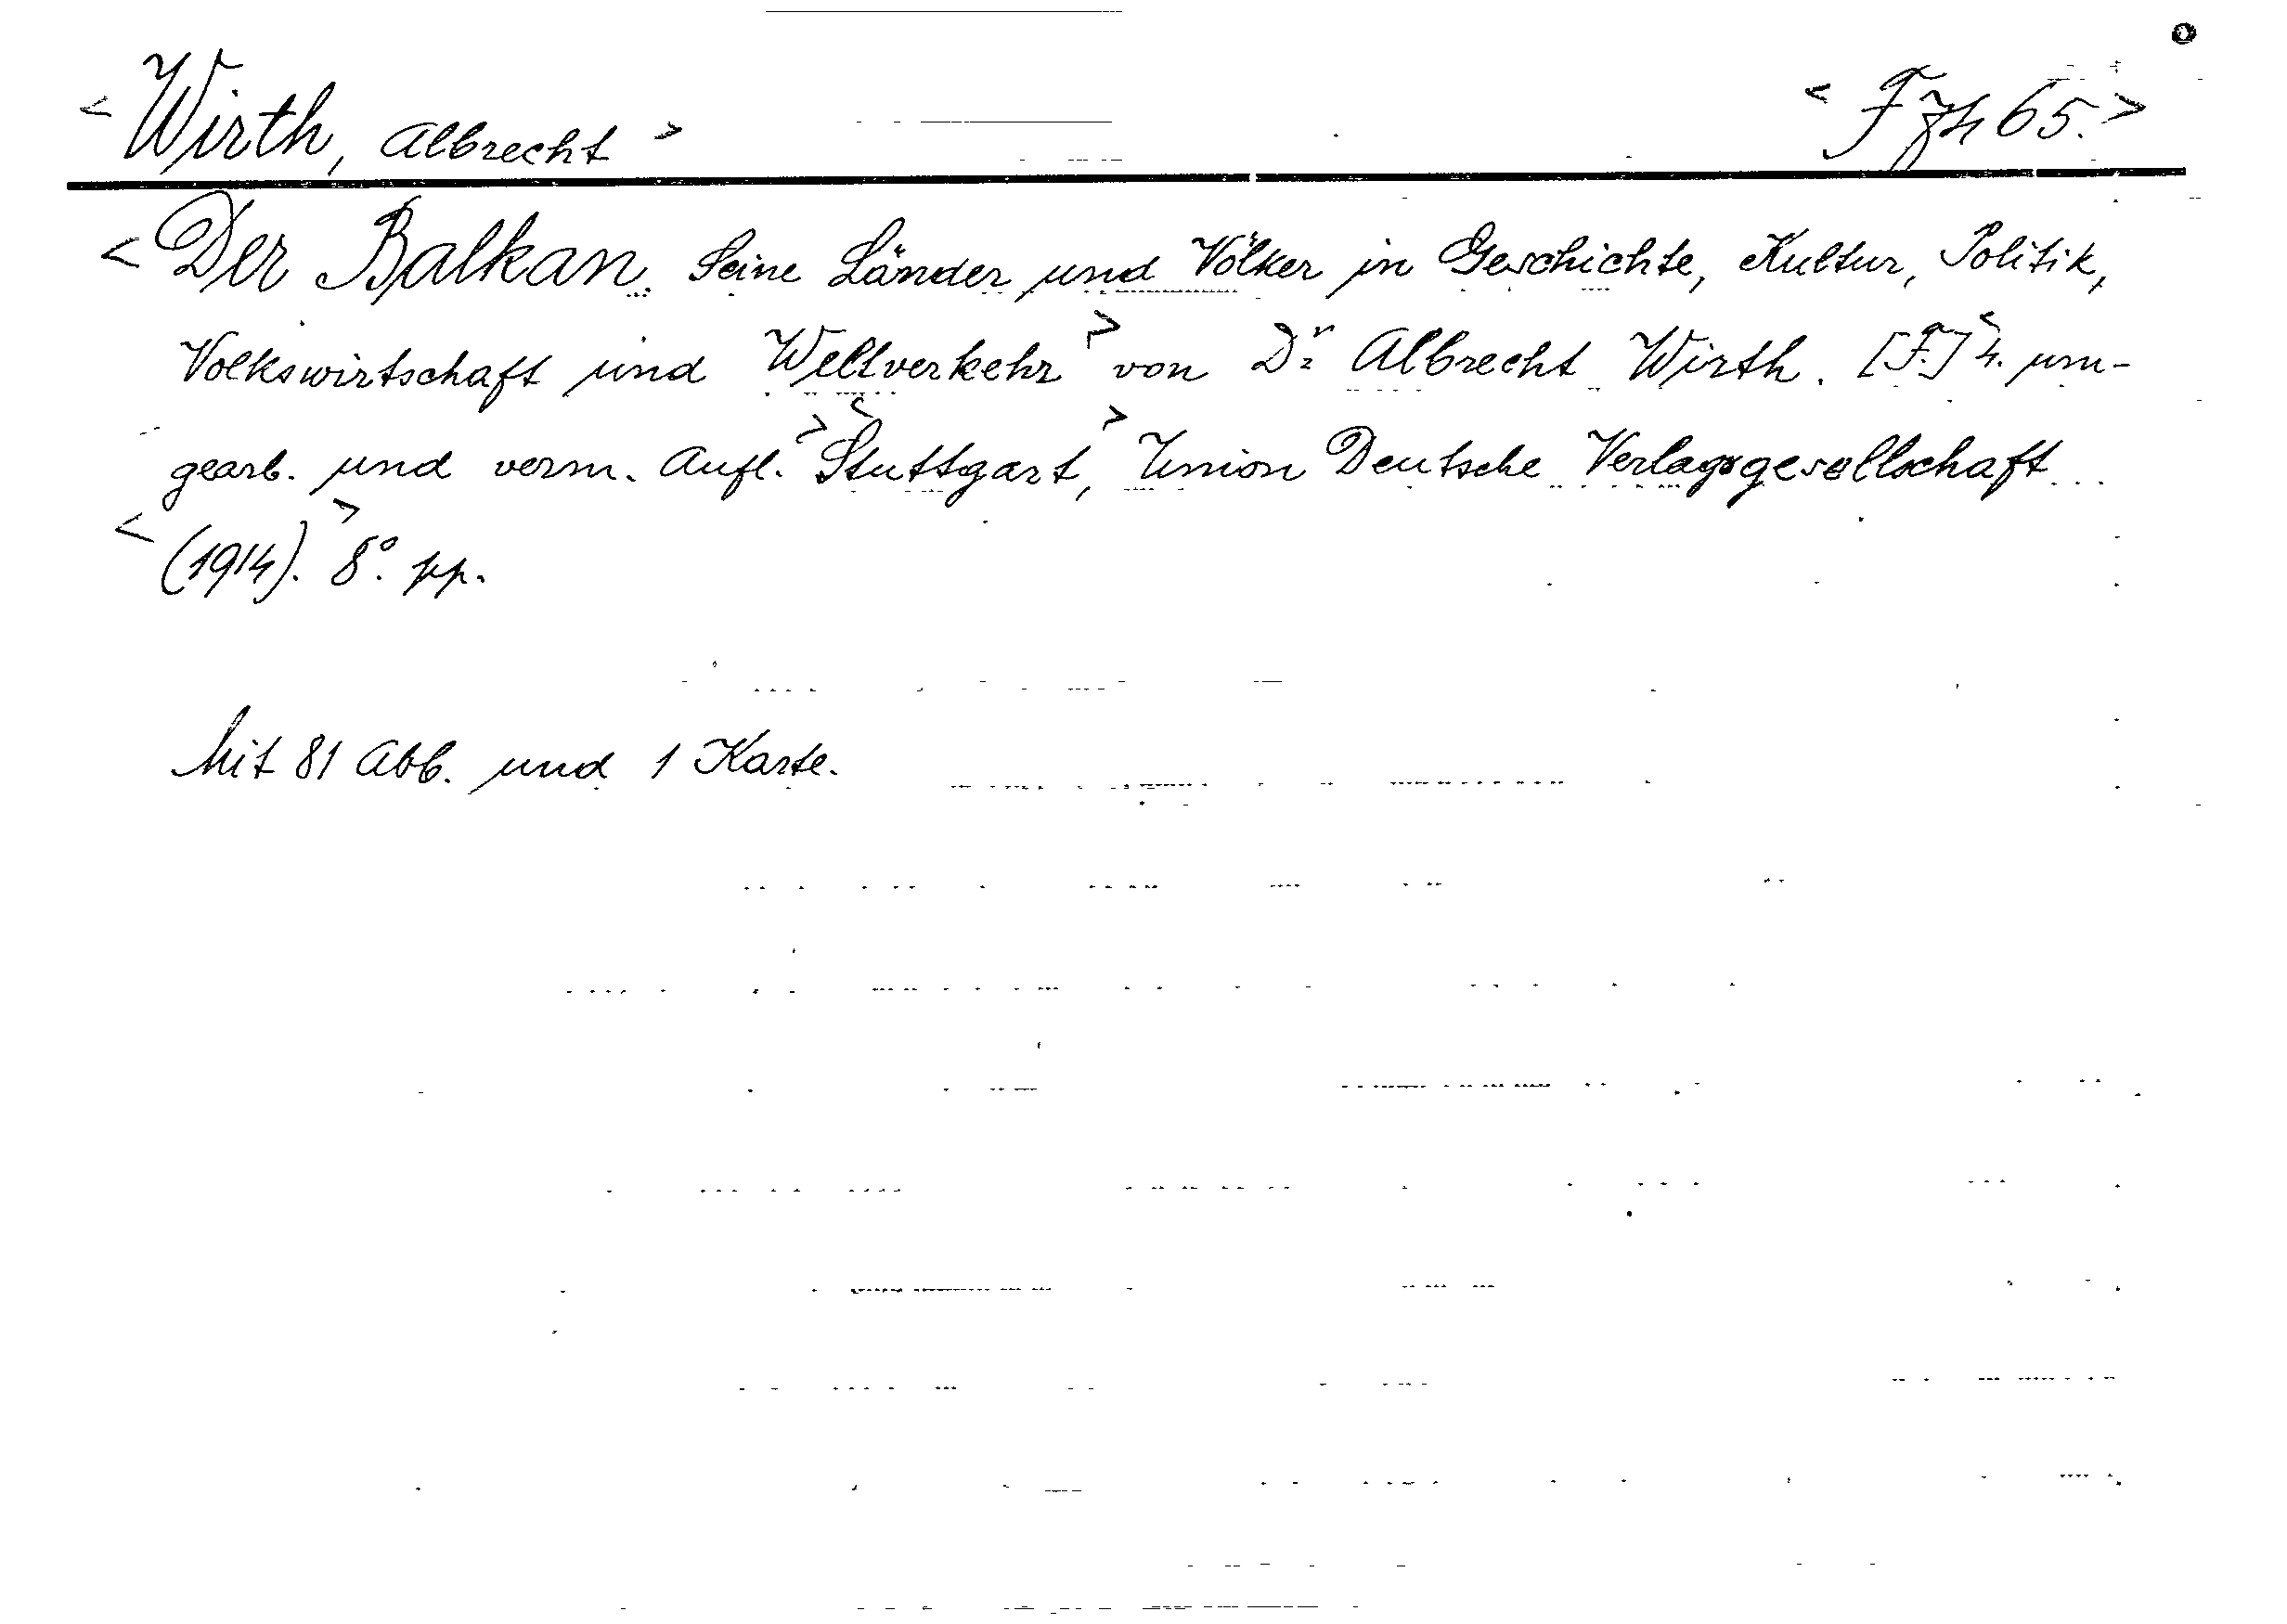 < Wirth, Albrecht > < Fzh 65. >
< Der Balkan. Seine Länder und Völker in Geschichte, Kultur, Politik,
Volkswirtschaft und Weltverkehr > von Dr Albrecht Wirth. [F.] < 4. um-
gearb. und verm. Aufl. > < Stuttgart, > Union Deutsche Verlagsgesellschaft
< (1914). > 8°. pp.
Mit 81 Abb. und 1 Karte.